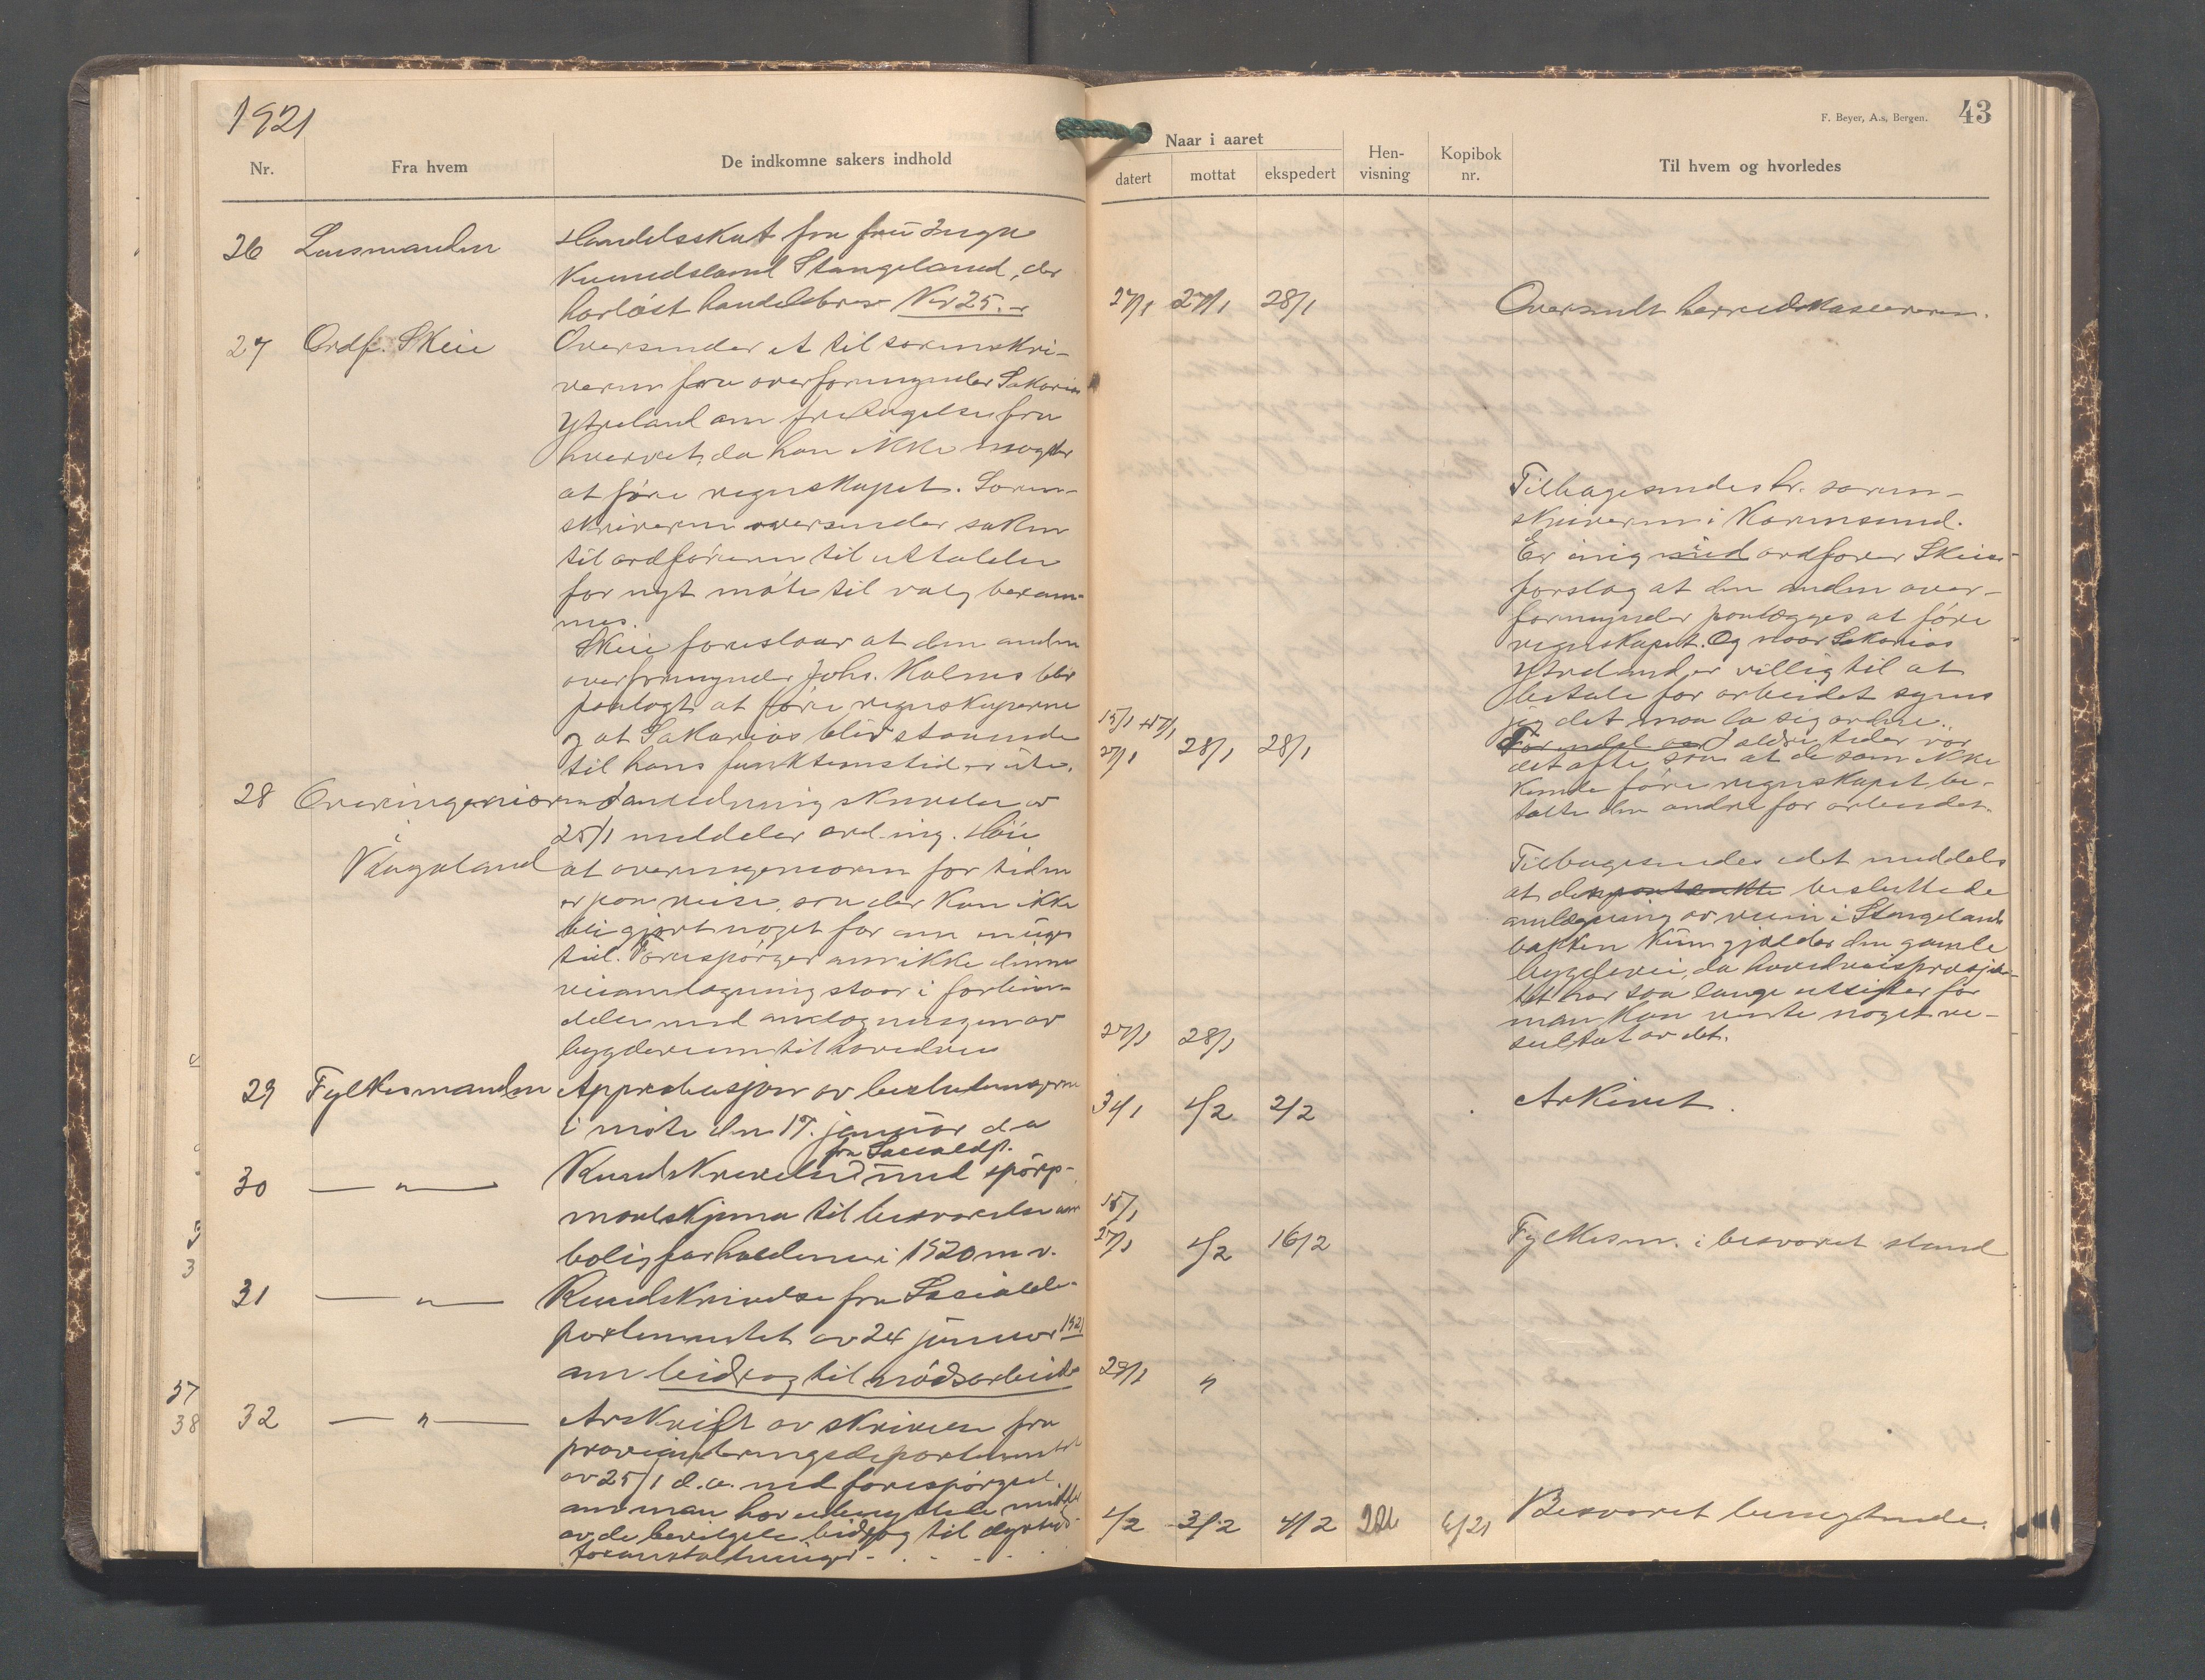 1921
Nr.
Fra hvem
De indkomne sakers indhold
26
Lensmanden
Handelsskat fra fru Inga
Stangeland, der
har løst handelsbrev Kr 25.-
27
Ordf. Skeie
Oversender et til sorenskri-
veren fra overformynder Sakarias
Ytreland om fritagelse fra
hvervet, da han ikke magter
at føre regnskapet. Soren-
skriveren oversender saken
til ordføreren til uttalelse
før nyt møte til valg beram-
mes.
Skeie foreslaar at den anden
overformynder Johs. Kalnes blir
paalagt at føre regnskaperne
og at Sakarias blir staaende
til hans funktionstid er ute.
28
Overingeniøren
Rogaland
I anledning skrivelse av
25/1 meddeler avd.ing. Høie
at overingeniøren for tiden
er paa reise, saa der kan ikke
bli gjort noget før om
tid. Forespørger om ikke denne
veiomlægning staar i forbin-
delse med omlægningen av
bygdeveien til hovedvei
29
Fylkesmanden
Approbasjon av beslutningerne
i møte den 17. januar d.a
30
— " —
fra Socialdp.
Rundskrivelse med spørs-
maalskjema til besvarelse om
boligforholdene i 1920 m.v.
31
— " —
Rundskrivelse fra Socialde-
partementet av 24 januar 1921
om bidrag til nødsarbeide
32
— " —
Avskrift av skrivelse fra
provianteringsdepartementet
av 25/1 d.a. med forespørgsel
om man har ubenyttede midler
av de bevilgede bidrag til dyrtids-
foranstaltninger
37
38
43
F. Beyer, A.s, Bergen.
Naar i aaret
datert
mottat
ekspedert
Hen-
visning
Kopibok
nr.
Til hvem og hvorledes
27/1 27/1 28/1
Oversendt herredskassereren.
Tilbagesendes hr. soren-
skriveren i Karmsund.
Er enig med ordfører Skeies
forslag at den anden over-
formynder paalægges at føre
regnskapet. Og naar Sakarias
Ytreland er villig til at
betale for arbeidet synes
jeg det maa la sig ordne.
I ældre tider var
det ofte saa at de som ikke
kunde føre regnskapet be-
talte den andre for arbeidet.
15/1
27/1 28/1 28/1
Tilbagesendes idet meddeles
at den paatænkte besluttede
omlægning av veien i Stangelands
bakken kun gjælder den gamle
bygdevei, da hovedveisprosjek-
tet har saa lange utsigter før
man kan vente noget re-
sultat av det.
27/1 28/1
31/1 1/2 2/2
Arkivet.
15/1
27/1 1/2 16/2
Fylkesm. i besvaret stand
29/1 "
1/2 3/2 4/2
Besvaret benegtende.